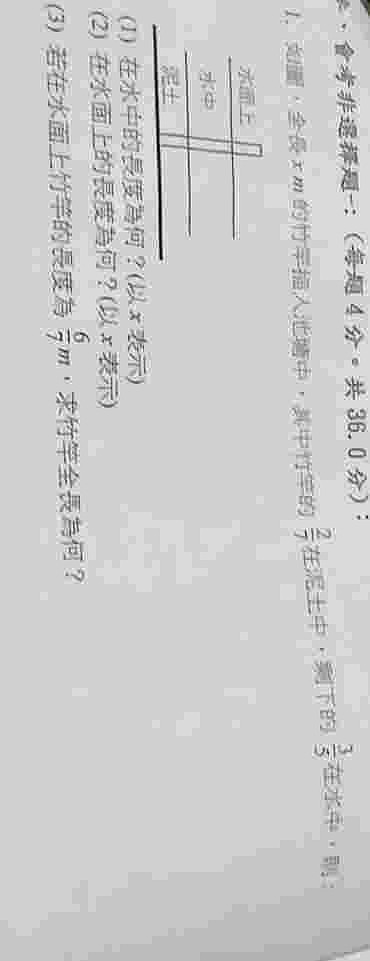 、會考非選擇題一：（每題 4 分。共 36.0 分）：
1. 如圖，全長 x m 的竹竿插入池塘中，其中竹竿的 2/7 在泥土中，剩下的 3/5 在水中，則：
水面上
水中
泥土
(1) 在水中的長度為何？(以 x 表示)
(2) 在水面上的長度為何？(以 x 表示)
(3) 若在水面上竹竿的長度為 6/7 m，求竹竿全長為何？